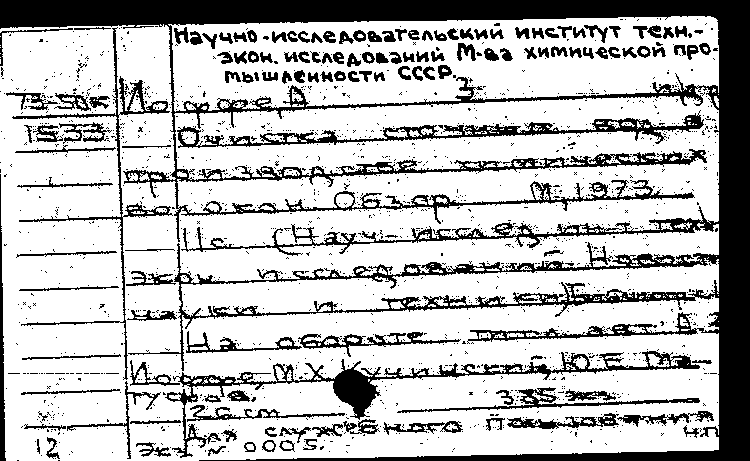 Научно-исследовательский институт техн.-
экон. исследований М-ва химической про-
мышленности СССР.
73-50к Иоффе, Д З и др
1533 Очистка сточных вод в
производстве химических
волокон. Обзор. М., 1973.
11с. (Науч.-исслед. ин-т техн.
экон. исследований. Новости
науки и техники)
На обороте тит.л. авт: Д.З.
Иоффе, М.Х. Кучинский, Ю.Е. Ма-
тускова.
26 см 335 экз.
Для служебного пользования
12 Экз. № 0005. н.п